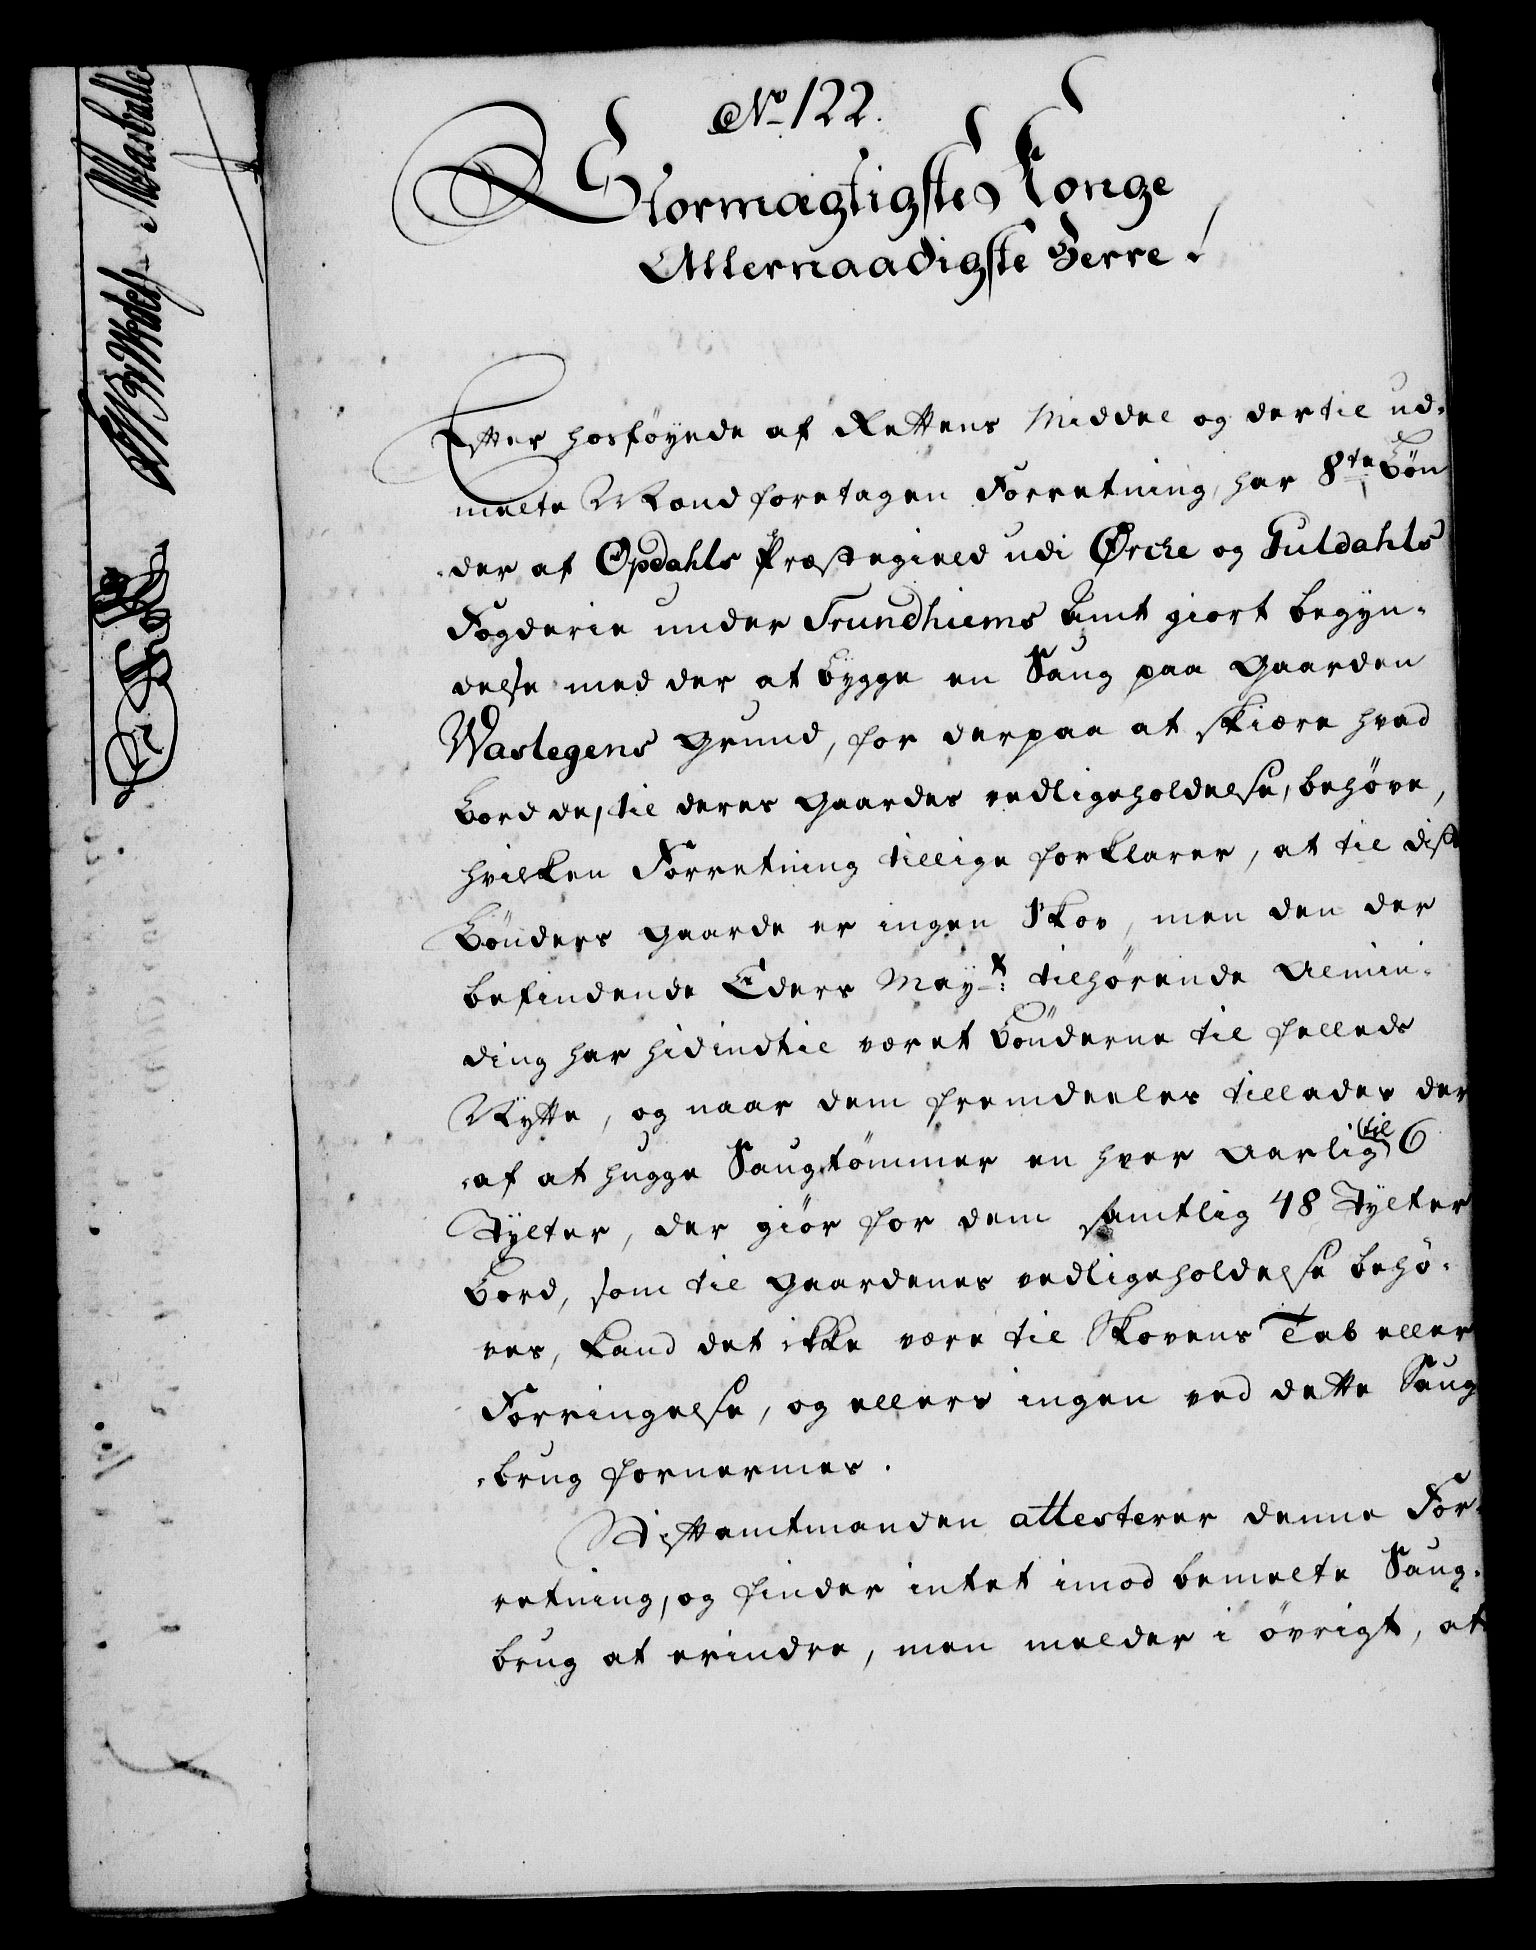 No 122.
Stormægtigste Konge
Allernaadigste Herre!
Efter hosföyede af Rettens Middel og dertil ud-
melte Mænd foretagen Forretning, har 8te Bön
-der af Opdahls Præstegield udi Ørche og Guldahls
Fogderie under Trundhiems Amt giort begyn-
delse med der at bygge en Saug paa Gaarden
Waslegens Grund, for derpaa at skiære hvad
Bord de, til deres Gaardes vedligeholdelse, behöve,
hvilken Forretning tillige forklarer, at til disse
Bönders Gaarde er ingen Skov, men den der
befindende Eders Mayts: tilhörende Almin-
ding har hidindtil været Bönderne til fælleds
Nytte, og naar dem fremdeeles tillades der
-af at hugge Saugtömmer en hver Aarlig til 6
Tylter, der giör for dem samtlig 48 Tylter
Bord, som til Gaardenes vedligeholdelse behö-
ves, kand det ikke være til Skovens Tab eller
Forringelse, og ellers ingen ved dette Saug
-brug fornermes.
Stiftamtmanden attesterer denne For-
retning, og finder intet imod bemelte Saug-
brug at erindre, men melder i övrigt, at